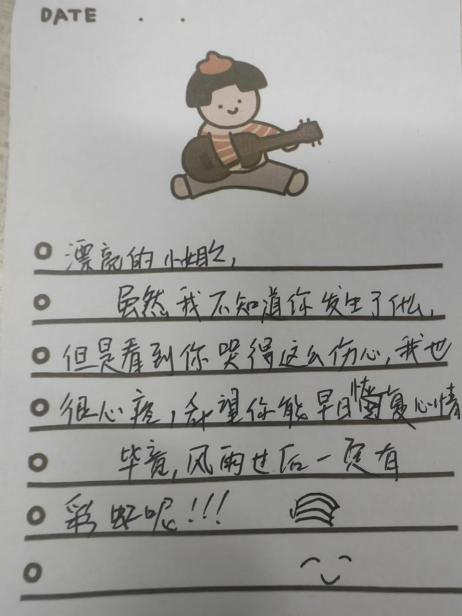 DATE . .
漂亮的小姐姐，
虽然我不知道你发生了什么，
但是看到你哭得这么伤心，我也
很心疼，希望你能早日恢复心情
毕竟，风雨过后一定有
彩虹呢！！！